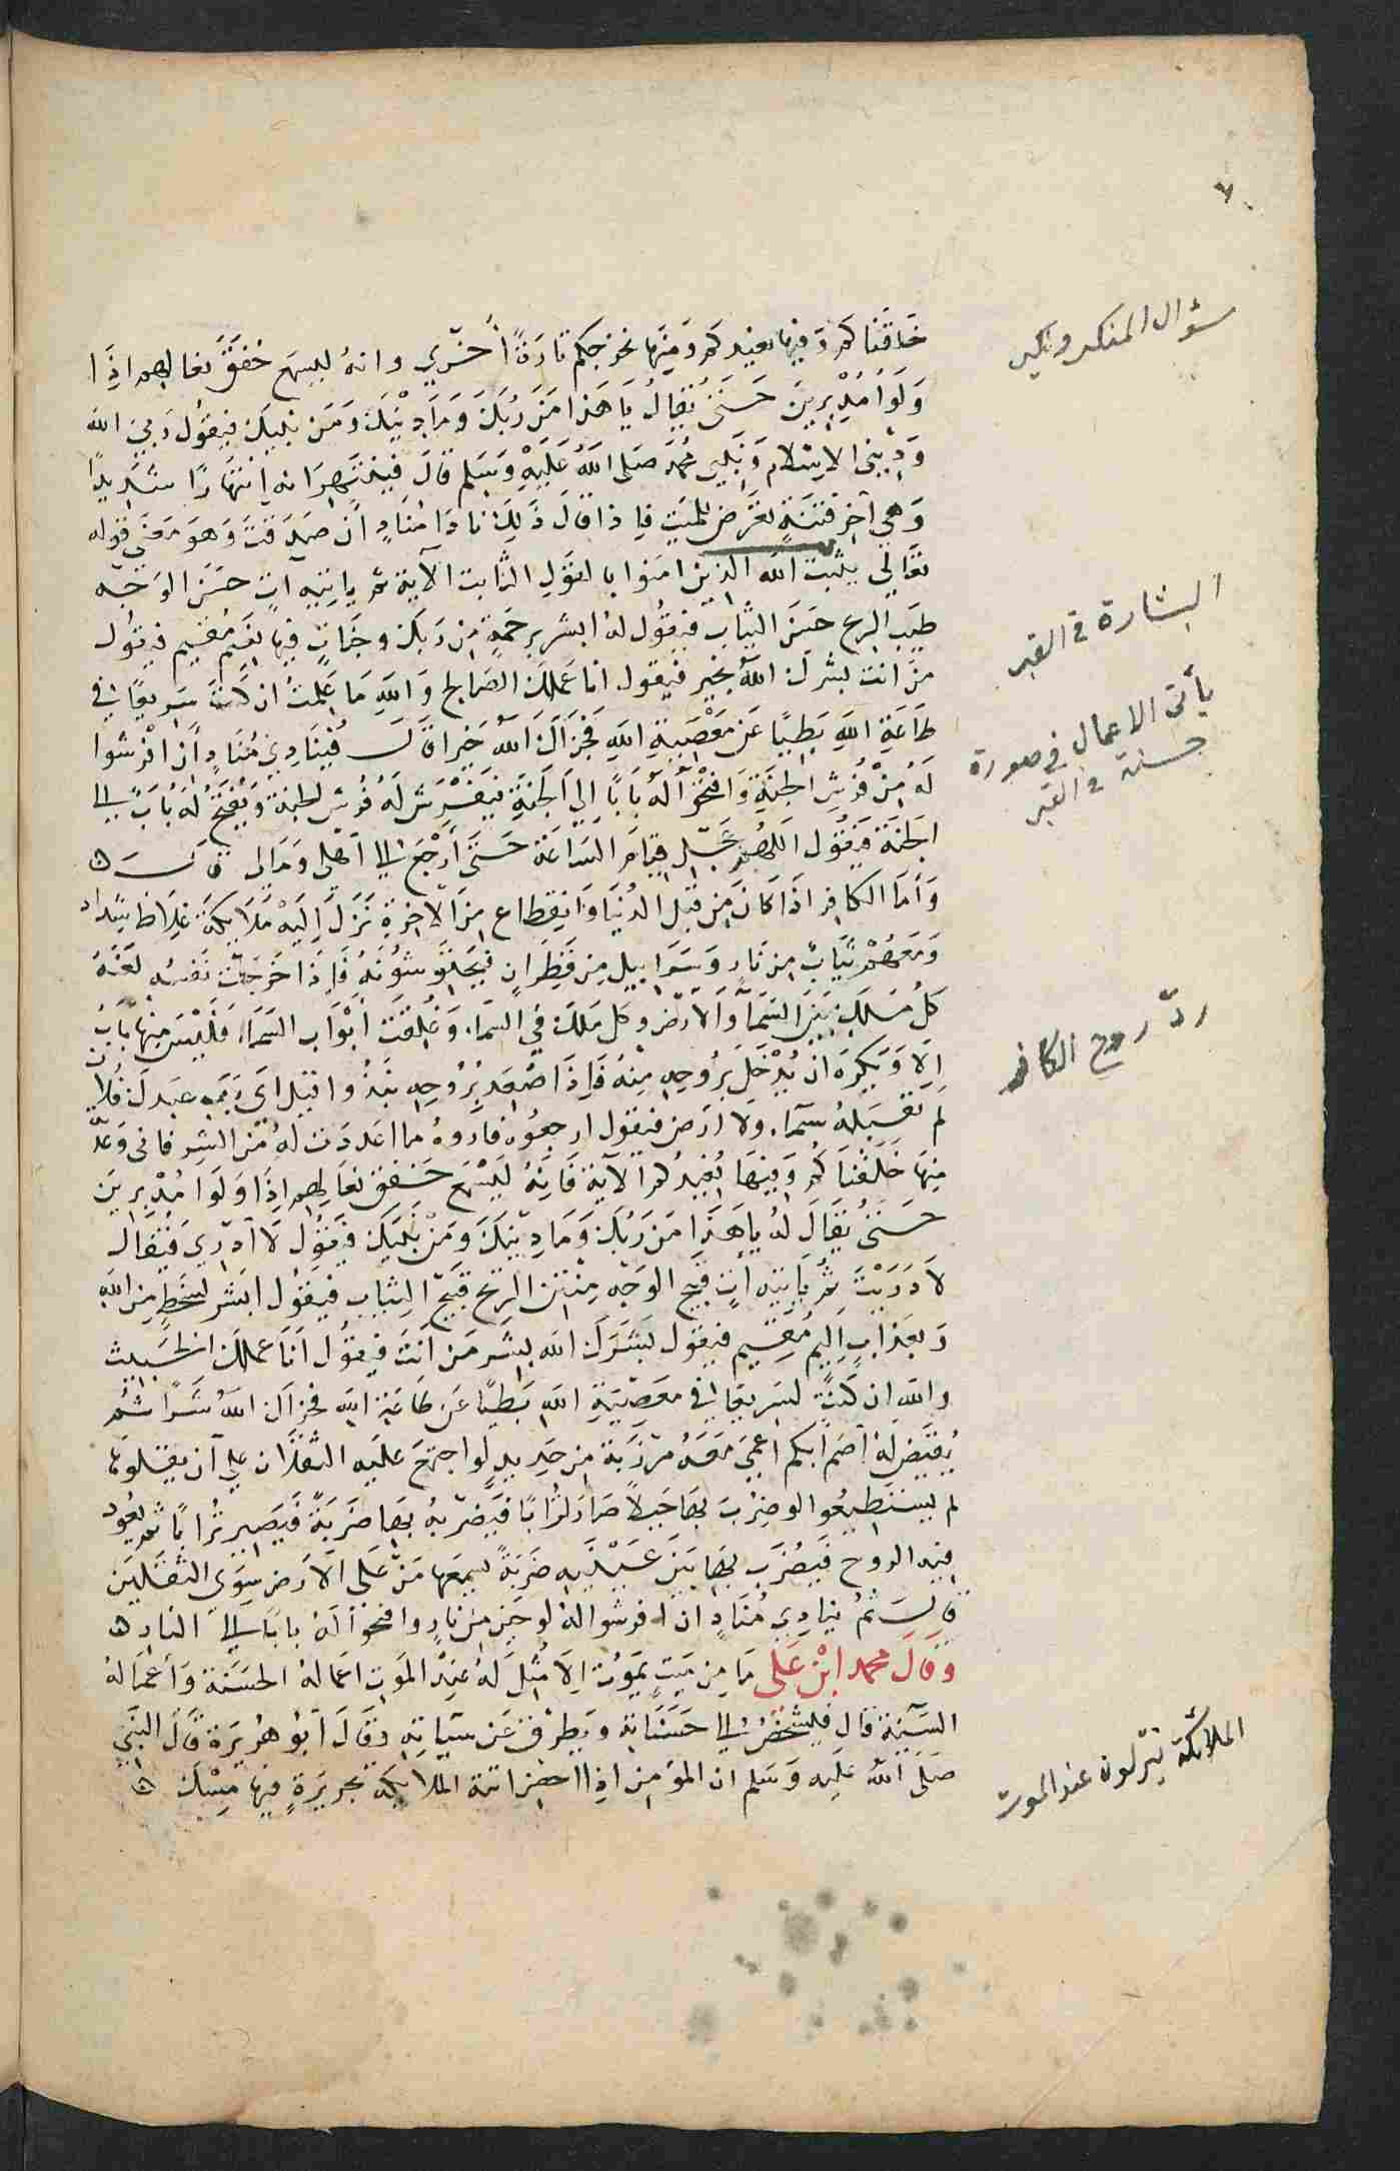 ٧
سؤال المنكر ونكير
خلقناكم وفيها نعيدكم ومنها نخرجكم تارة أخري وانه ليسمع خفق نعالهم اذا
ولوا مدبرين حتى يقال يا هذا من ربك وما دينك ومن نبيك فيقول ربي الله
وديني الاسلام ونبيي محمد صلى الله عليه وسلم قال فينتهرانه انتهارا شديدا
وهي آخر فتنة تعرض للميت فاذا قال ذلك نادا مناد أن صدقت وهو معني قوله
تعالي يثبت الله الذين امنوا بالقول الثابت الآية ثم ياتيه آت حسن الوجه
البشارة في القبر
طيب الريح حسن الثياب فيقول له ابشر برحمة من ربك وجنات فيها نعيم مقيم فيقول
من انت بشرك الله بخير فيقول انا عملك الصالح والله ما علمت ان كنت سريعا في
يأتى الاعمال في صورة
حسنة في القبر
طاعة الله بطيا عن معصية الله فجزاك الله خيرا قال فينادي مناد أن افرشوا
له من فرش الجنة وافتحوا له بابا الي الجنة فيفرش له فرش الجنة ويفتح له باب الي
الجنة فيقول اللهم عجل قيام الساعة حتى أرجع الي أهلي ومالي قال ه
وأما الكافر اذا كان من قبل الدنيا وانقطاع من الاخرة نزل اليه ملايكة غلاظ شداد
ومعهم ثياب من نار وسرابيل من قطران فيحتوشونه فاذا خرجت نفسه لعنه
كل ملك بين السماء والارض وكل ملك في السماء وغلقت أبواب السماء فليس منها باب
ردّ روح الكافر
الا ويكره ان يدخل بروحه منه فاذا صعد بروحه نبذ وقيل اي رب عبدك فلان
لم تقبله سماء ولا ارض فيقول ارجعوه فاروه ما اعددت له من الشر فاني وعدته
منها خلقناكم وفيها نعيدكم الآية فانه ليسمع خفق نعالهم اذا ولوا مدبرين
حتى يقال له يا هذا من ربك وما دينك ومن نبيك فيقول لا أدري فيقال
لا دريت ثم ياتيه آت قبيح الوجه منتن الريح قبيح الثياب فيقول ابشر بسخط من الله
وبعذاب اليم مقيم فيقول بشرك الله بشر من انت فيقول أنا عملك الخبيث
والله ان كنت لسريعا في معصية الله بطيا عن طاعة الله فجزاك الله شرا ثم
يقيض له أصم ابكم اعمي معه مرزبة من حديد لو اجتمع عليه الثقلان علي أن يقلوها
لم يستطيعوا لو ضرب بها جبلا صار ترابا فيضربه بها ضربة فيصير ترابا ثم يعود
فيه الروح فيضرب بها بين عينيه ضربة يسمعها من على الارض سوى الثقلين
قال ثم ينادي مناد ان افرشوا له لوحين من نار وافتحوا له بابا الي النار ه
وقال محمد ابن على ما من ميت يموت الا مثل له عند الموت اعماله الحسنة وأعماله
السيية قال فيشخص الي حسناته ويطرق عن سياته وقال أبو هريرة قال النبي
صلى الله عليه وسلم ان المؤمن اذا احضر اتته الملايكة بحريرة فيها مسك ه
الملائكة يتزلون عند الموت